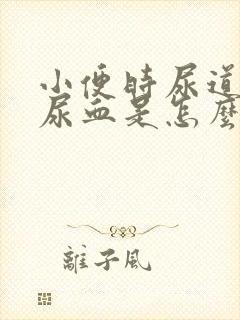 小便时尿道
尿血是怎麼
離子风